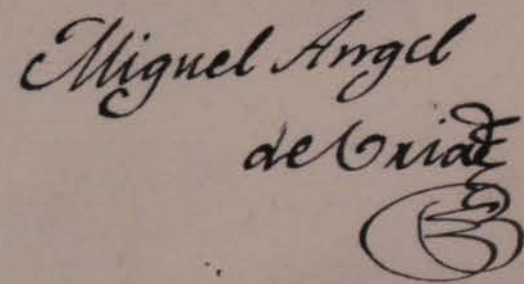 Miguel Angel
de Uriarte